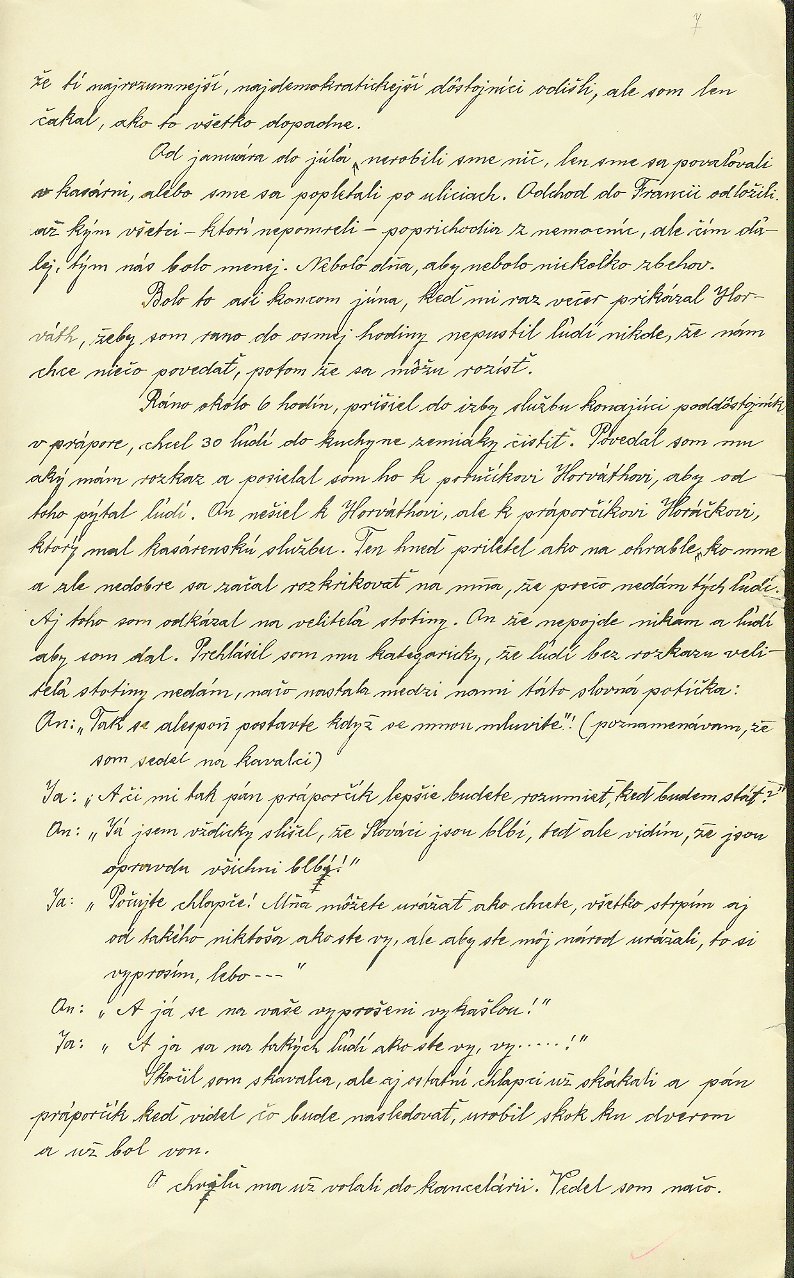 7
že tí najrozumnejší, najdemokratickejší dôstojníci odišli, ale som len
čakal, ako to všetko dopadne.
Od januára do júla nerobili sme nič, len sme sa povaľovali
v kasárni, alebo sme sa popletali po uliciach. Odchod do Francii odložili
až kým všetci – ktorí nepomreli – poprichodia z nemocníc, ale čím ďa-
lej, tým nás bolo menej. Nebolo dňa, aby nebolo niekoľko zbehov.
Bolo to asi koncom júna, keď mi raz večer prikázal Hor-
váth, žeby som rano do osmej hodiny nepustil ľudí nikde, že nám
chce niečo povedať, potom že sa môžu rozísť.
Ráno okolo 6 hodín, prišiel do izby službu konajúci poddôstojník
v prápore, chcel 30 ľudí do kuchyne zemiaky čistiť. Povedal som mu
aký mám rozkaz a posielal som ho k poručíkovi Horváthovi, aby od
toho pýtal ľudí. On nešiel k Horváthovi, ale k práporčíkovi Horáčkovi,
ktorý mal kasárenskú službu. Ten hneď priletel ako na ohrable, ko mne
a zle nedobre sa začal rozkrikovať na mňa, že prečo nedám tých ľudí.
Aj toho som odkázal na veliteľa stotiny. On že nepojde nikam a ľudí
aby som dal. Prehlásil som mu kategoricky, že ľudí bez rozkazu veli-
teľa stotiny nedám, načo nastala medzi nami táto slovná potička:
On: „Tak se alespoň postavte když se mnou mluvíte"! (poznamenávam, že
som sedel na kavalci)
Ja: „A či mi tak pán práporčík lepšie budete rozumieť, keď budem stáť?"
On: „Já jsem vždicky slišel, že Slováci jsou blbí, teď ale vidím, že jsou
opravdu všichni blbý!"
Ja: „Počujte chlapče! Mňa môžete urážať ako chcete, všetko strpím aj
od takého niktoša ako ste vy, ale aby ste môj národ urážali, to si
vyprosím, lebo---"
On: „A já se na vaše vyprošeni vykašlou!"
Ja: „A ja sa na takých ľudí ako ste vy, vy.....!"
Skočil som skavalca, ale aj ostatní chlapci už skákali a pán
práporčík keď videl čo bude nasledovať, urobil skok ku dverom
a už bol von.
O chvíľu ma už volali do kancelárii. Vedel som načo.